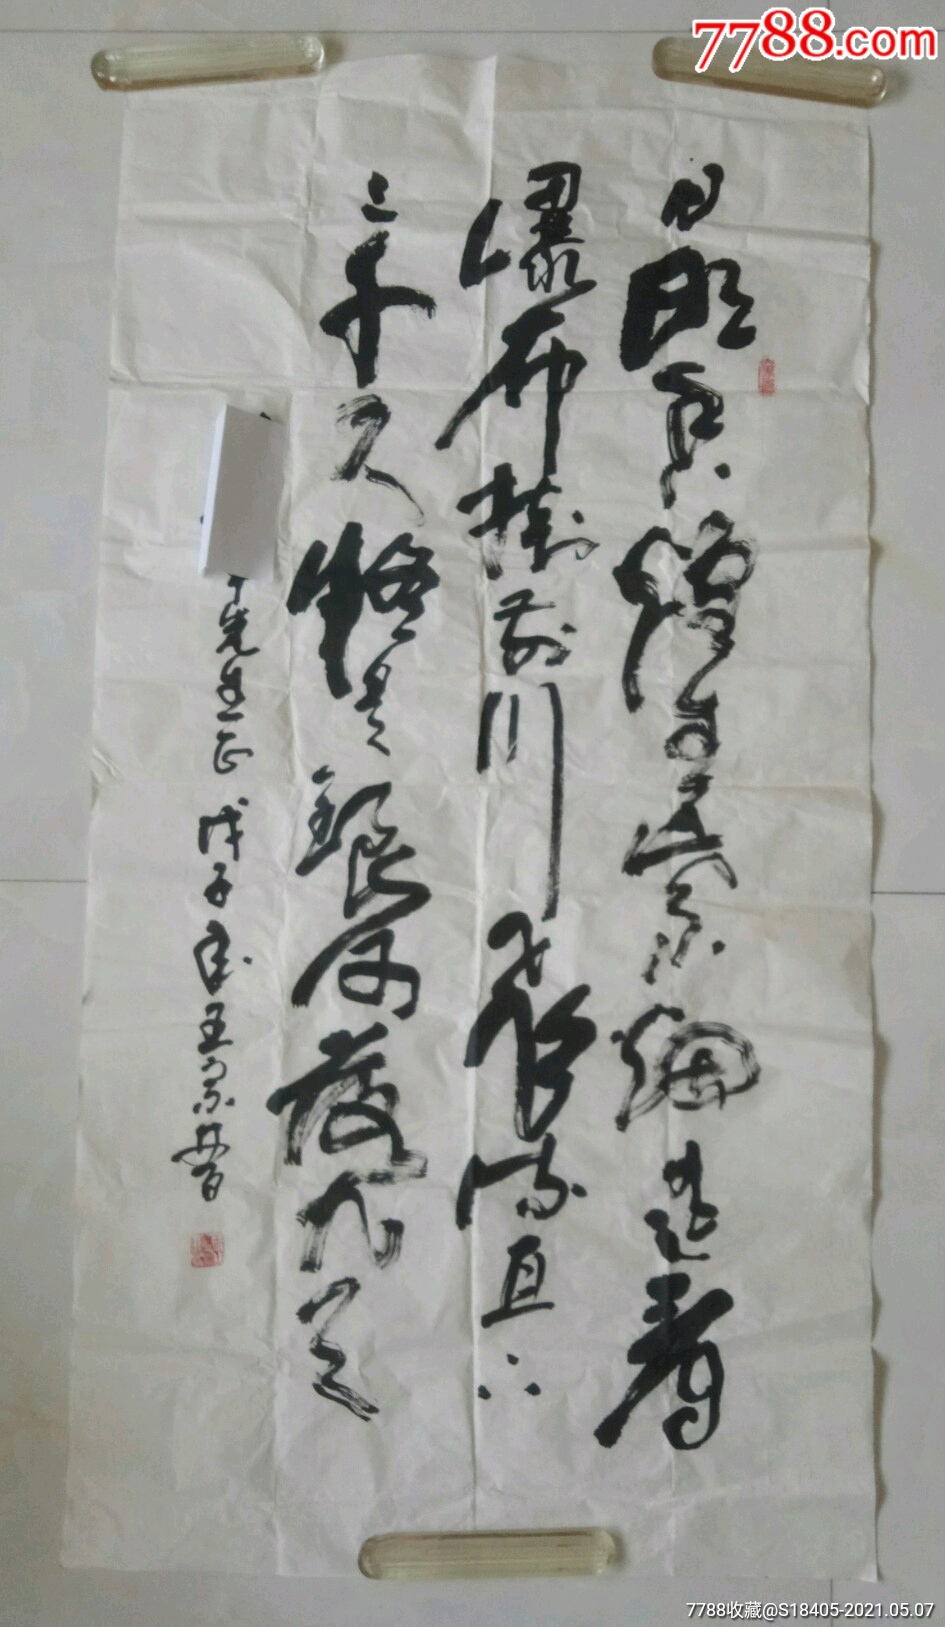 7788.com
日照香炉生紫烟遥看
瀑布挂前川飞流直下
三千尺疑是银河落九天
先生正 戊子年王景晋
7788收藏@S18405-2021.05.07